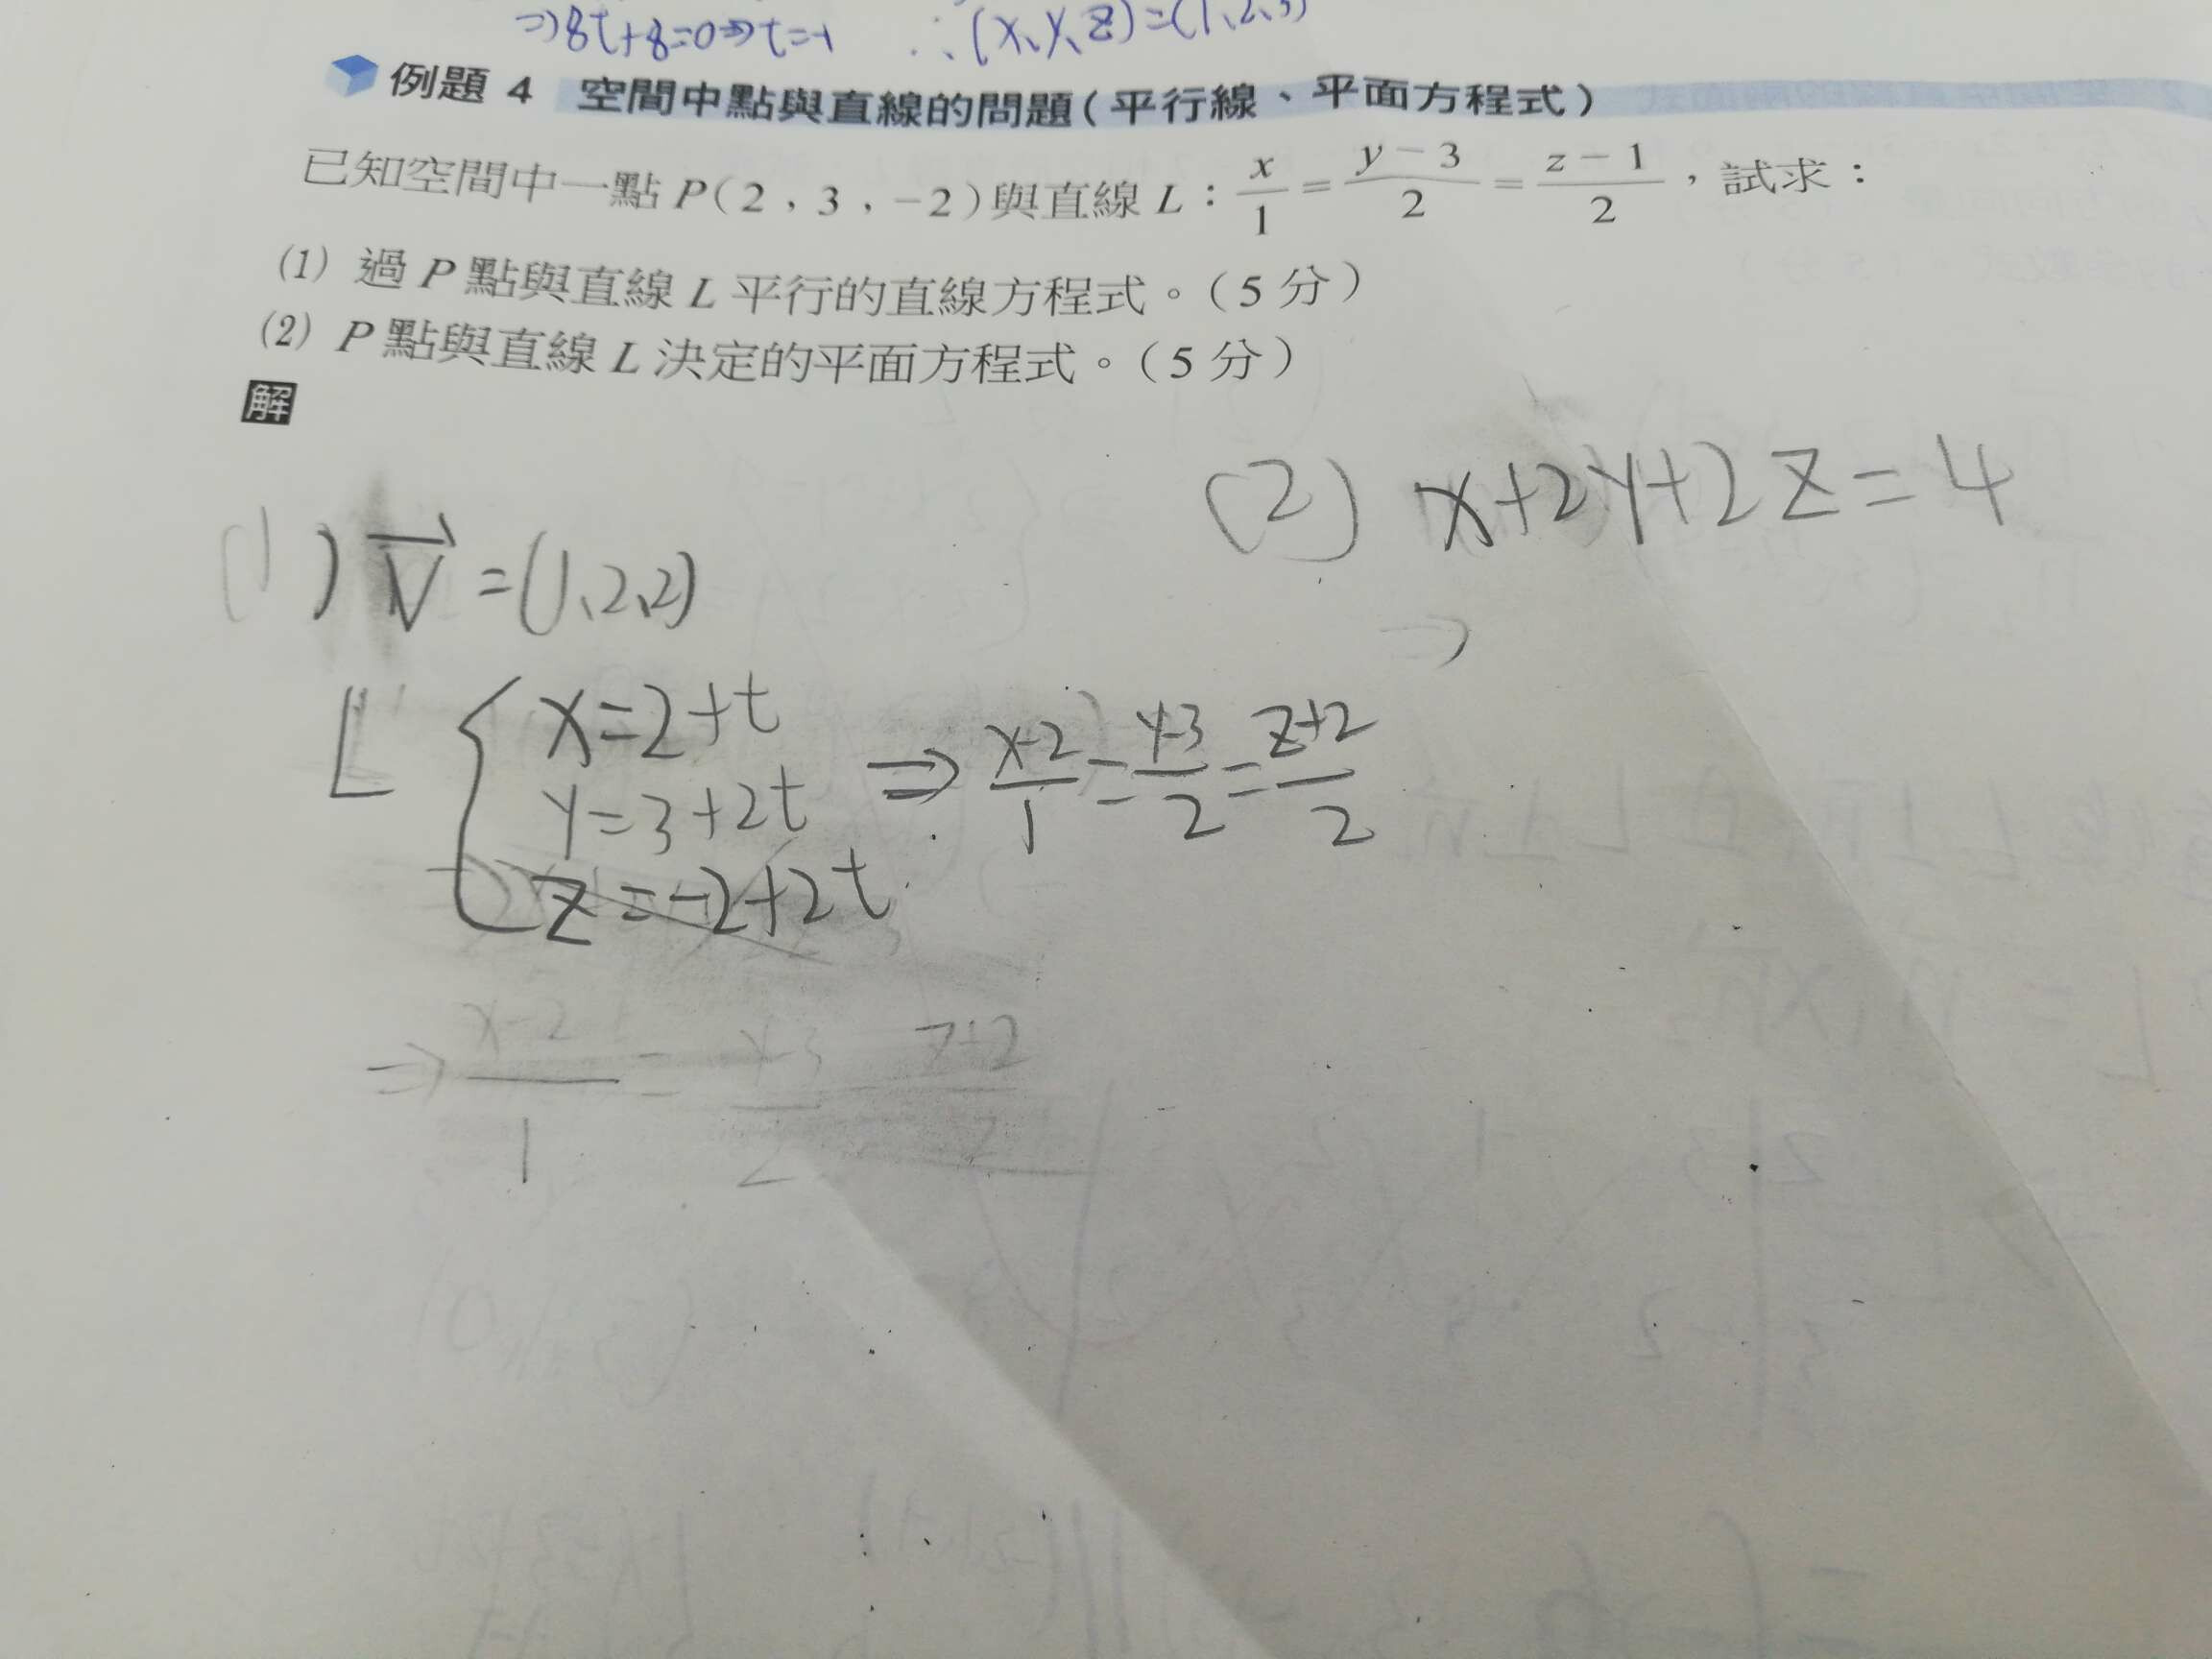 ⇒8t+8=0⇒t=-1 ∴(x、y、z)=(1、2、3)
例題 4 空間中點與直線的問題(平行線、平面方程式)
已知空間中一點 P(2,3,-2)與直線 L:x/1=(y-3)/2=(z-1)/2,試求:
(1) 過 P 點與直線 L 平行的直線方程式。(5 分)
(2) P 點與直線 L 決定的平面方程式。(5 分)
解
(1) V⃗=(1、2、2)
L { x=2+t
y=3+2t ⇒ (x-2)/1=(y-3)/2=(z+2)/2
z=-2+2t
⇒ (x-2)/1 = (y-3)/2 (z+2)/2
(2) x+2y+2z=4
⇒